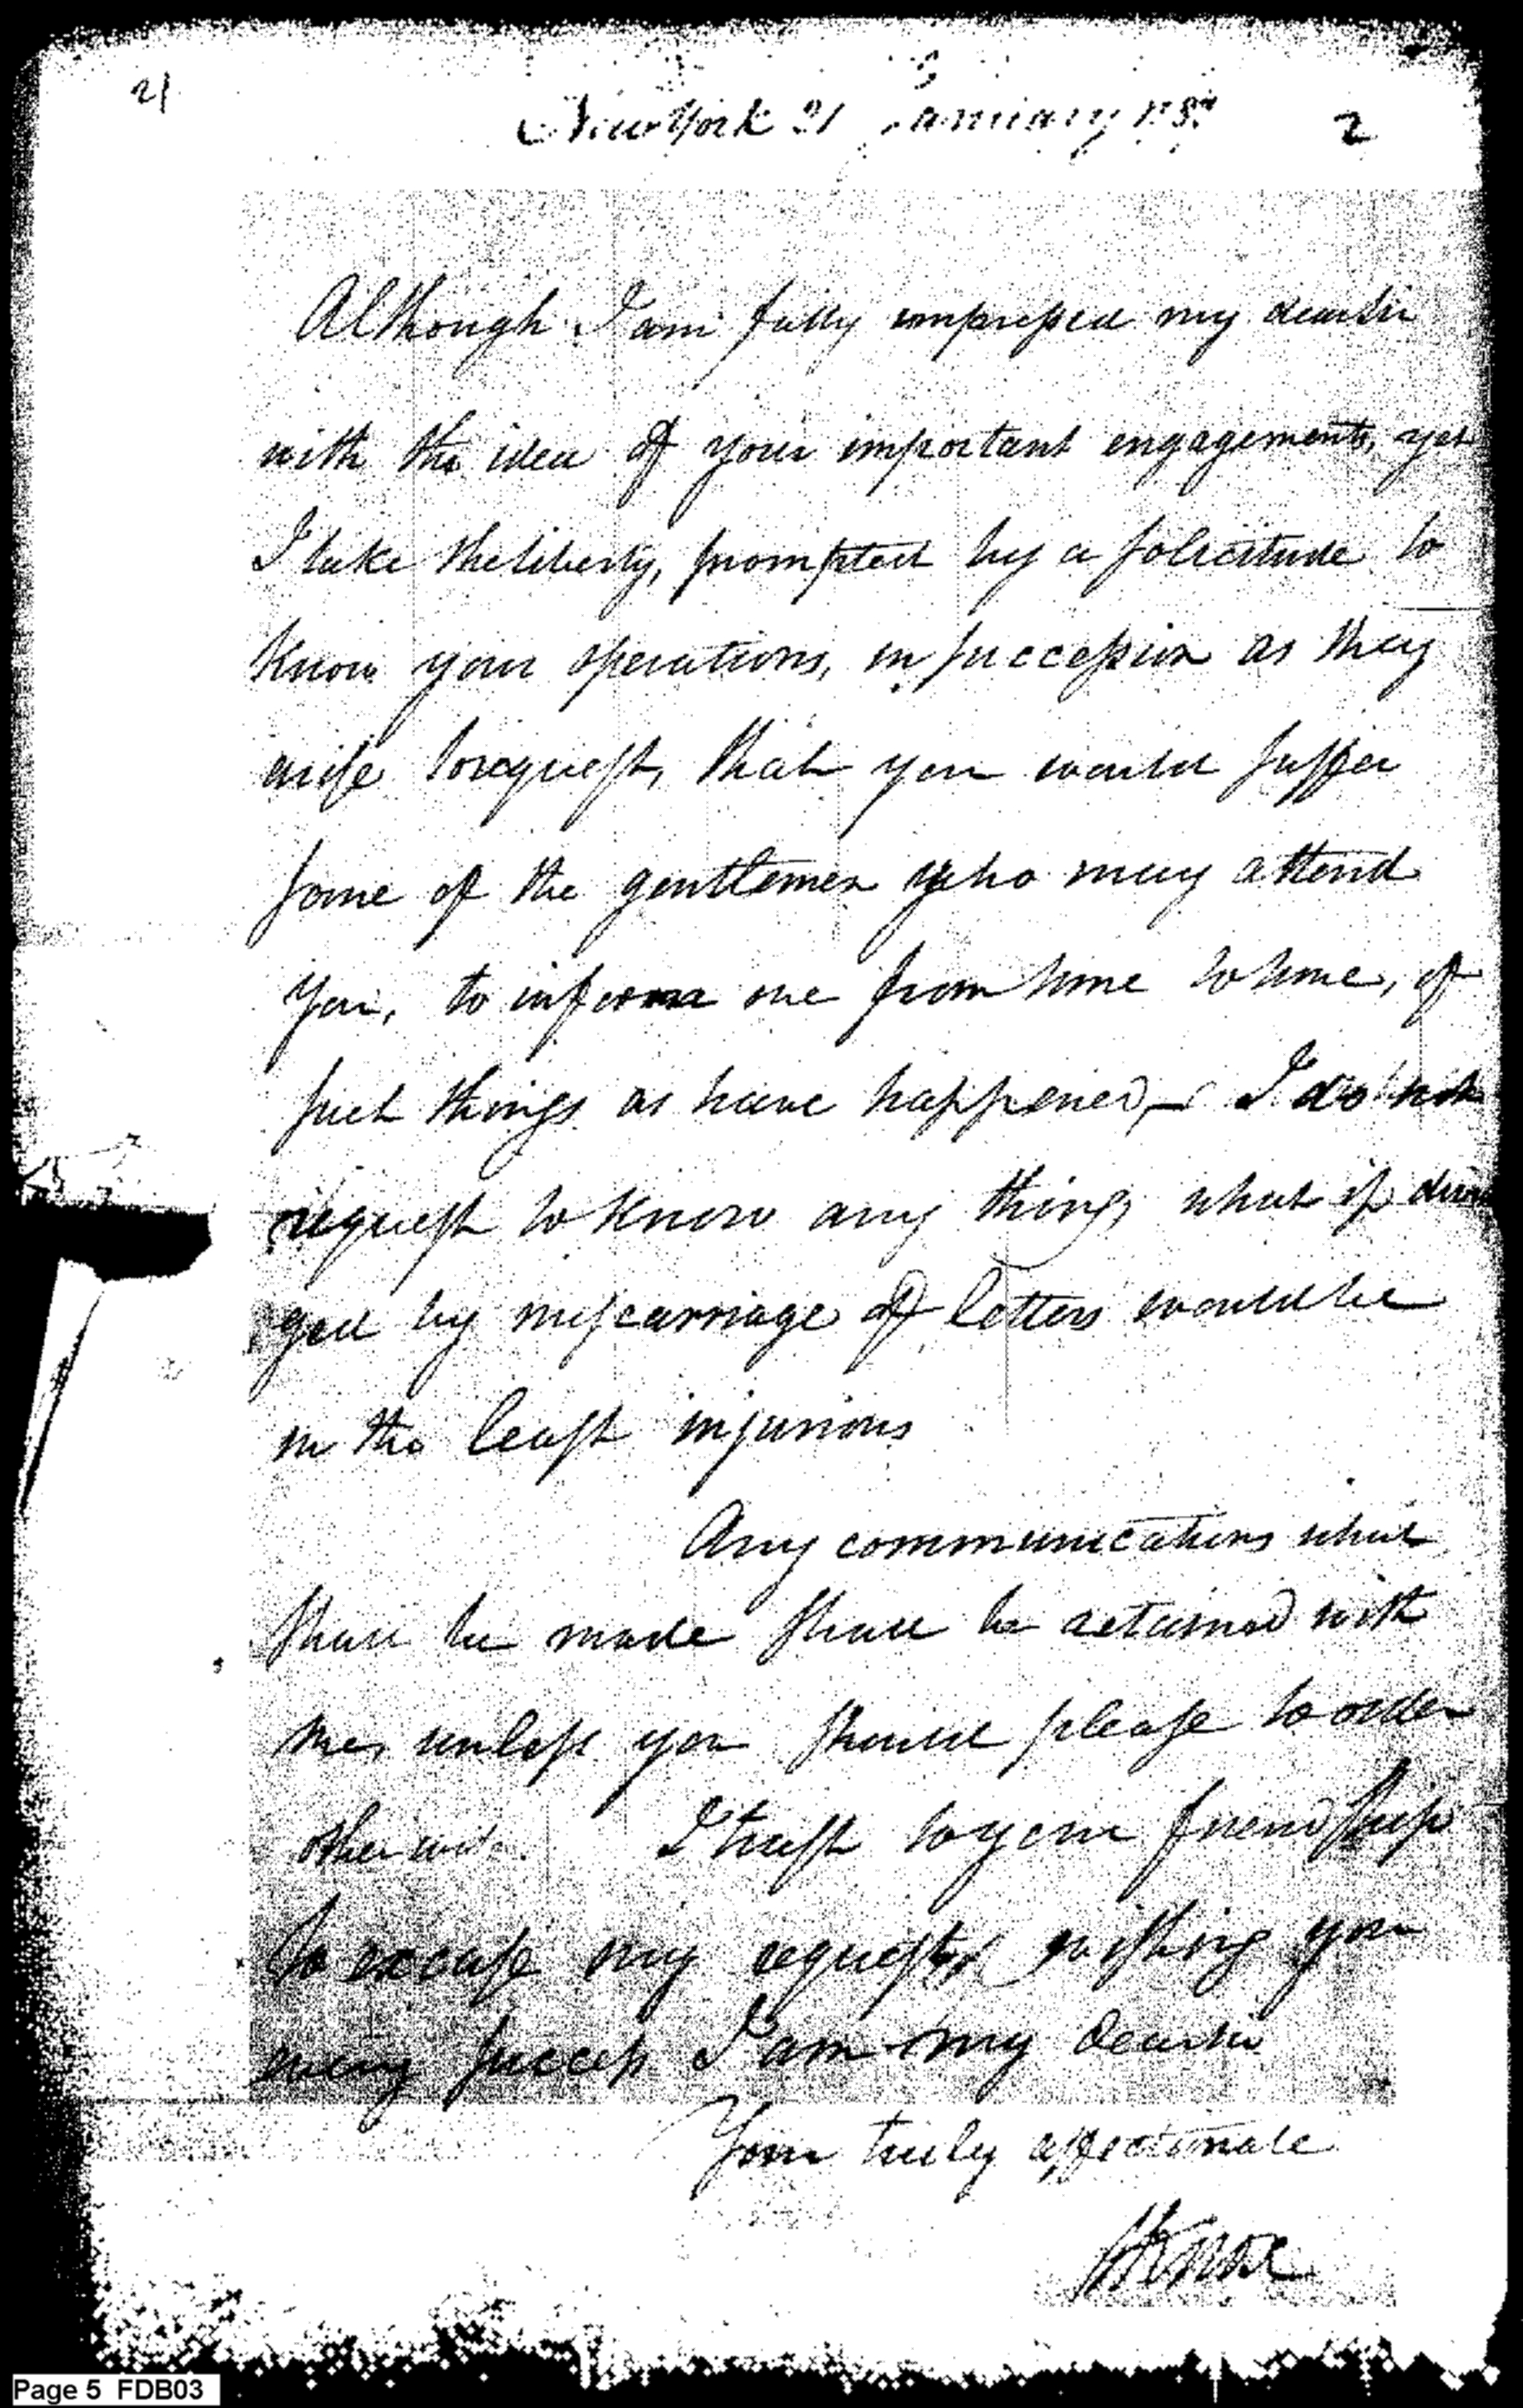 21
New York 21 January 1787
2
Although I am fully impressed my dear sir
with the idea of your important engagements, yet
I take the liberty, prompted by a solicitude to
know your operations, in succession as they
arise to request, that you would suffer
some of the gentlemen who may attend
you, to inform me from time to time, of
such things as have happened,— I do not
request to know any thing, what if divul
ged by miscarriage of letters would be
in the least injurious
Any communications what
shall be made shall be retained with
me, unless you should please to order
otherwise. I trust to your friendship
to excuse my request, wishing you
every success I am my dear sir
Your truly affectionate
HKnox
Page 5 FDB03